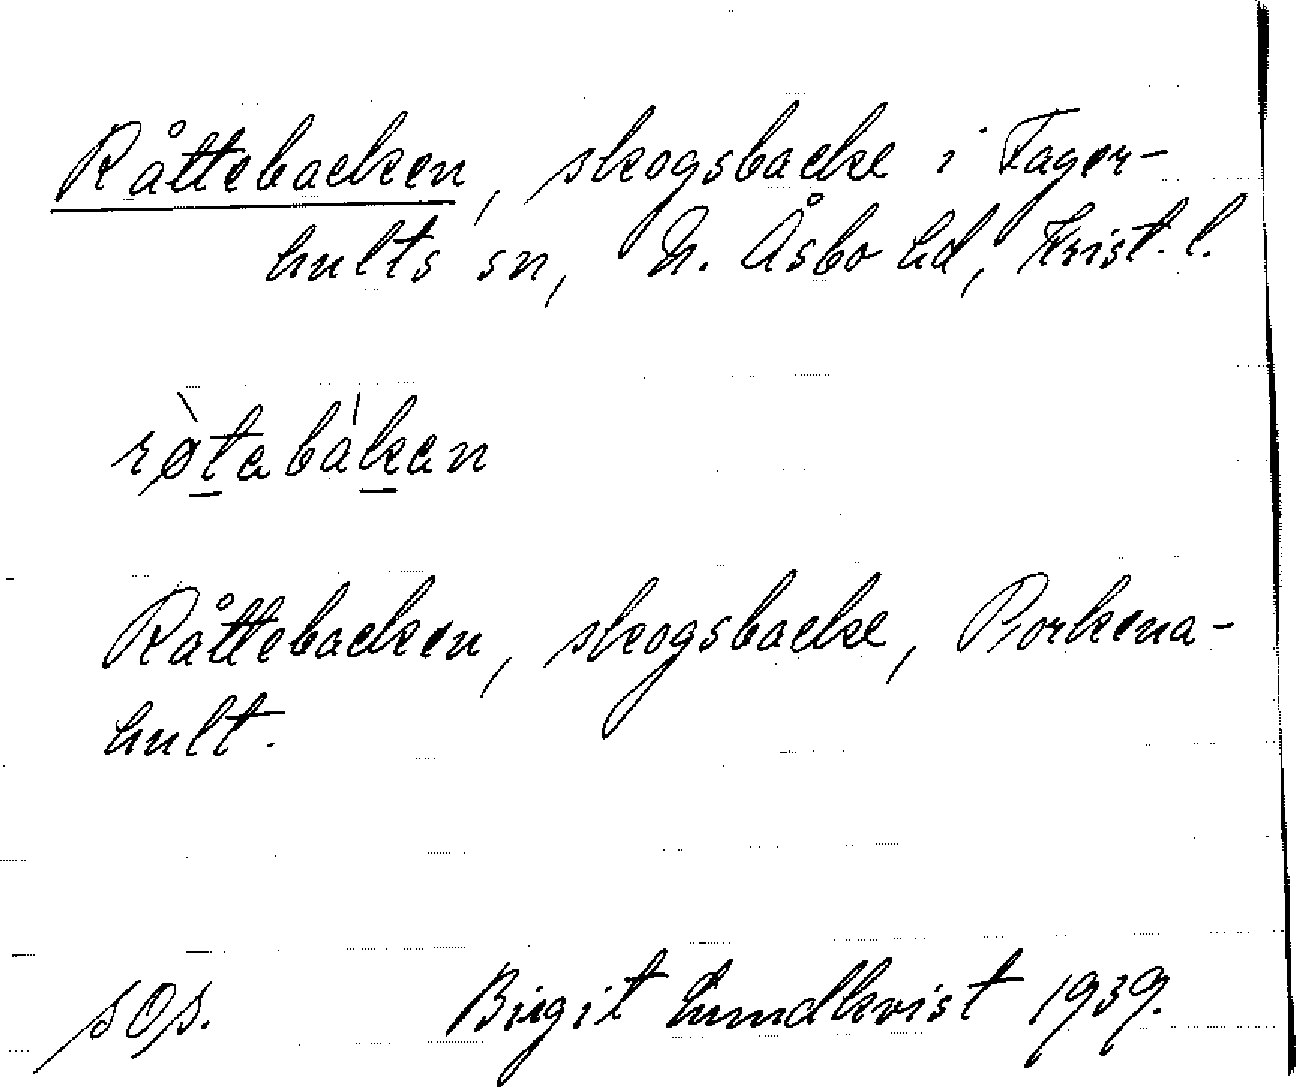 Råttebacken, skogsbacke i Fager-
hults sn, N. Åsbo hd, Krist. l.
røtabakan
Råttebacken, skogsbacke, Porkena-
hult.
sOs. Birgit Lundkvist 1939.